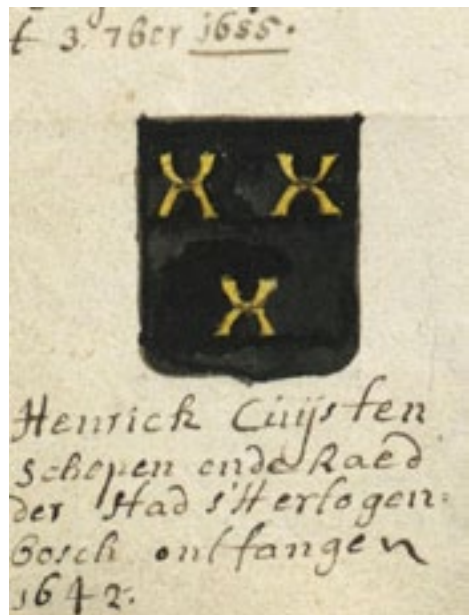 t 3. 7ber 1655.
Henrick Cuijsten
Schepen ende Raed
der Stad s'Hertogen-
bosch ontfangen
1642.